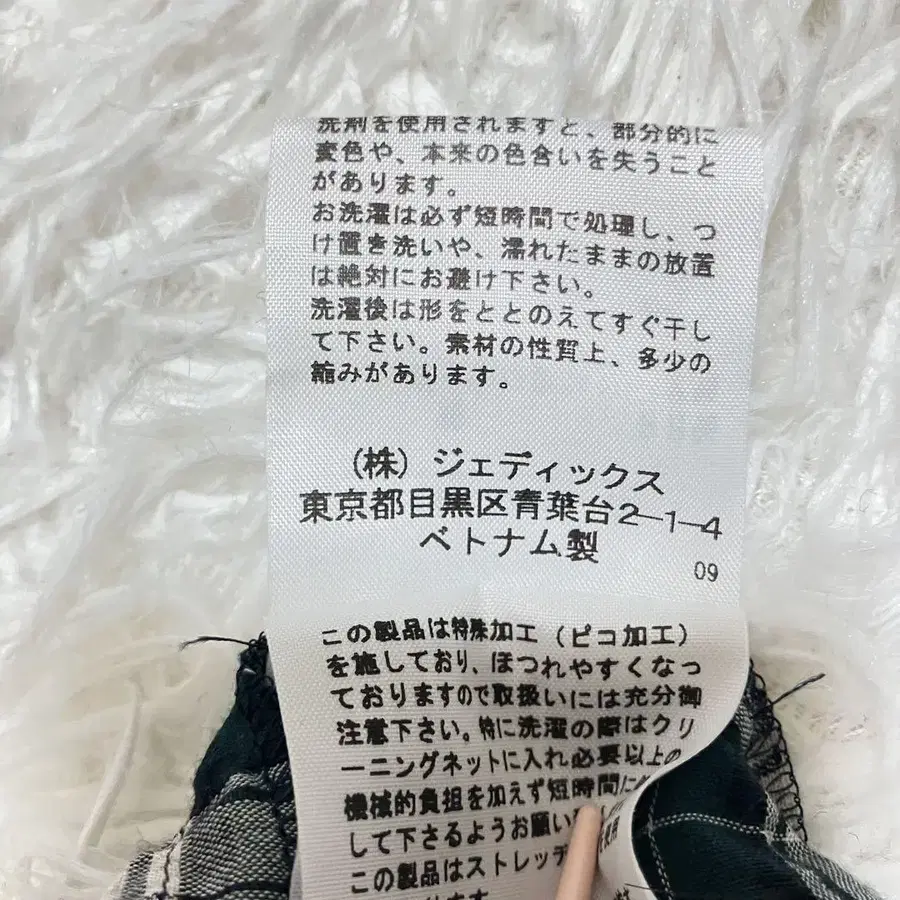 洗剤を使用されますと、部分的に
変色や、本来の色合いを失うこと
があります。
お洗濯は必ず短時間で処理し、つ
け置き洗いや、濡れたままの放置
は絶対にお避け下さい。
洗濯後は形をととのえてすぐ干し
て下さい。素材の性質上、多少の
縮みがあります。
(株)ジェディックス
東京都目黒区青葉台2-1-4
ベトナム製
09
この製品は特殊加工(ピコ加工)
を施しており、ほつれやすくなっ
ておりますので取扱いには充分御
注意下さい。特に洗濯の際はクリ
ーニングネットに入れ必要以上の
機械的負担を加えず短時間に
して下さるようお願い
この製品はストレッチ